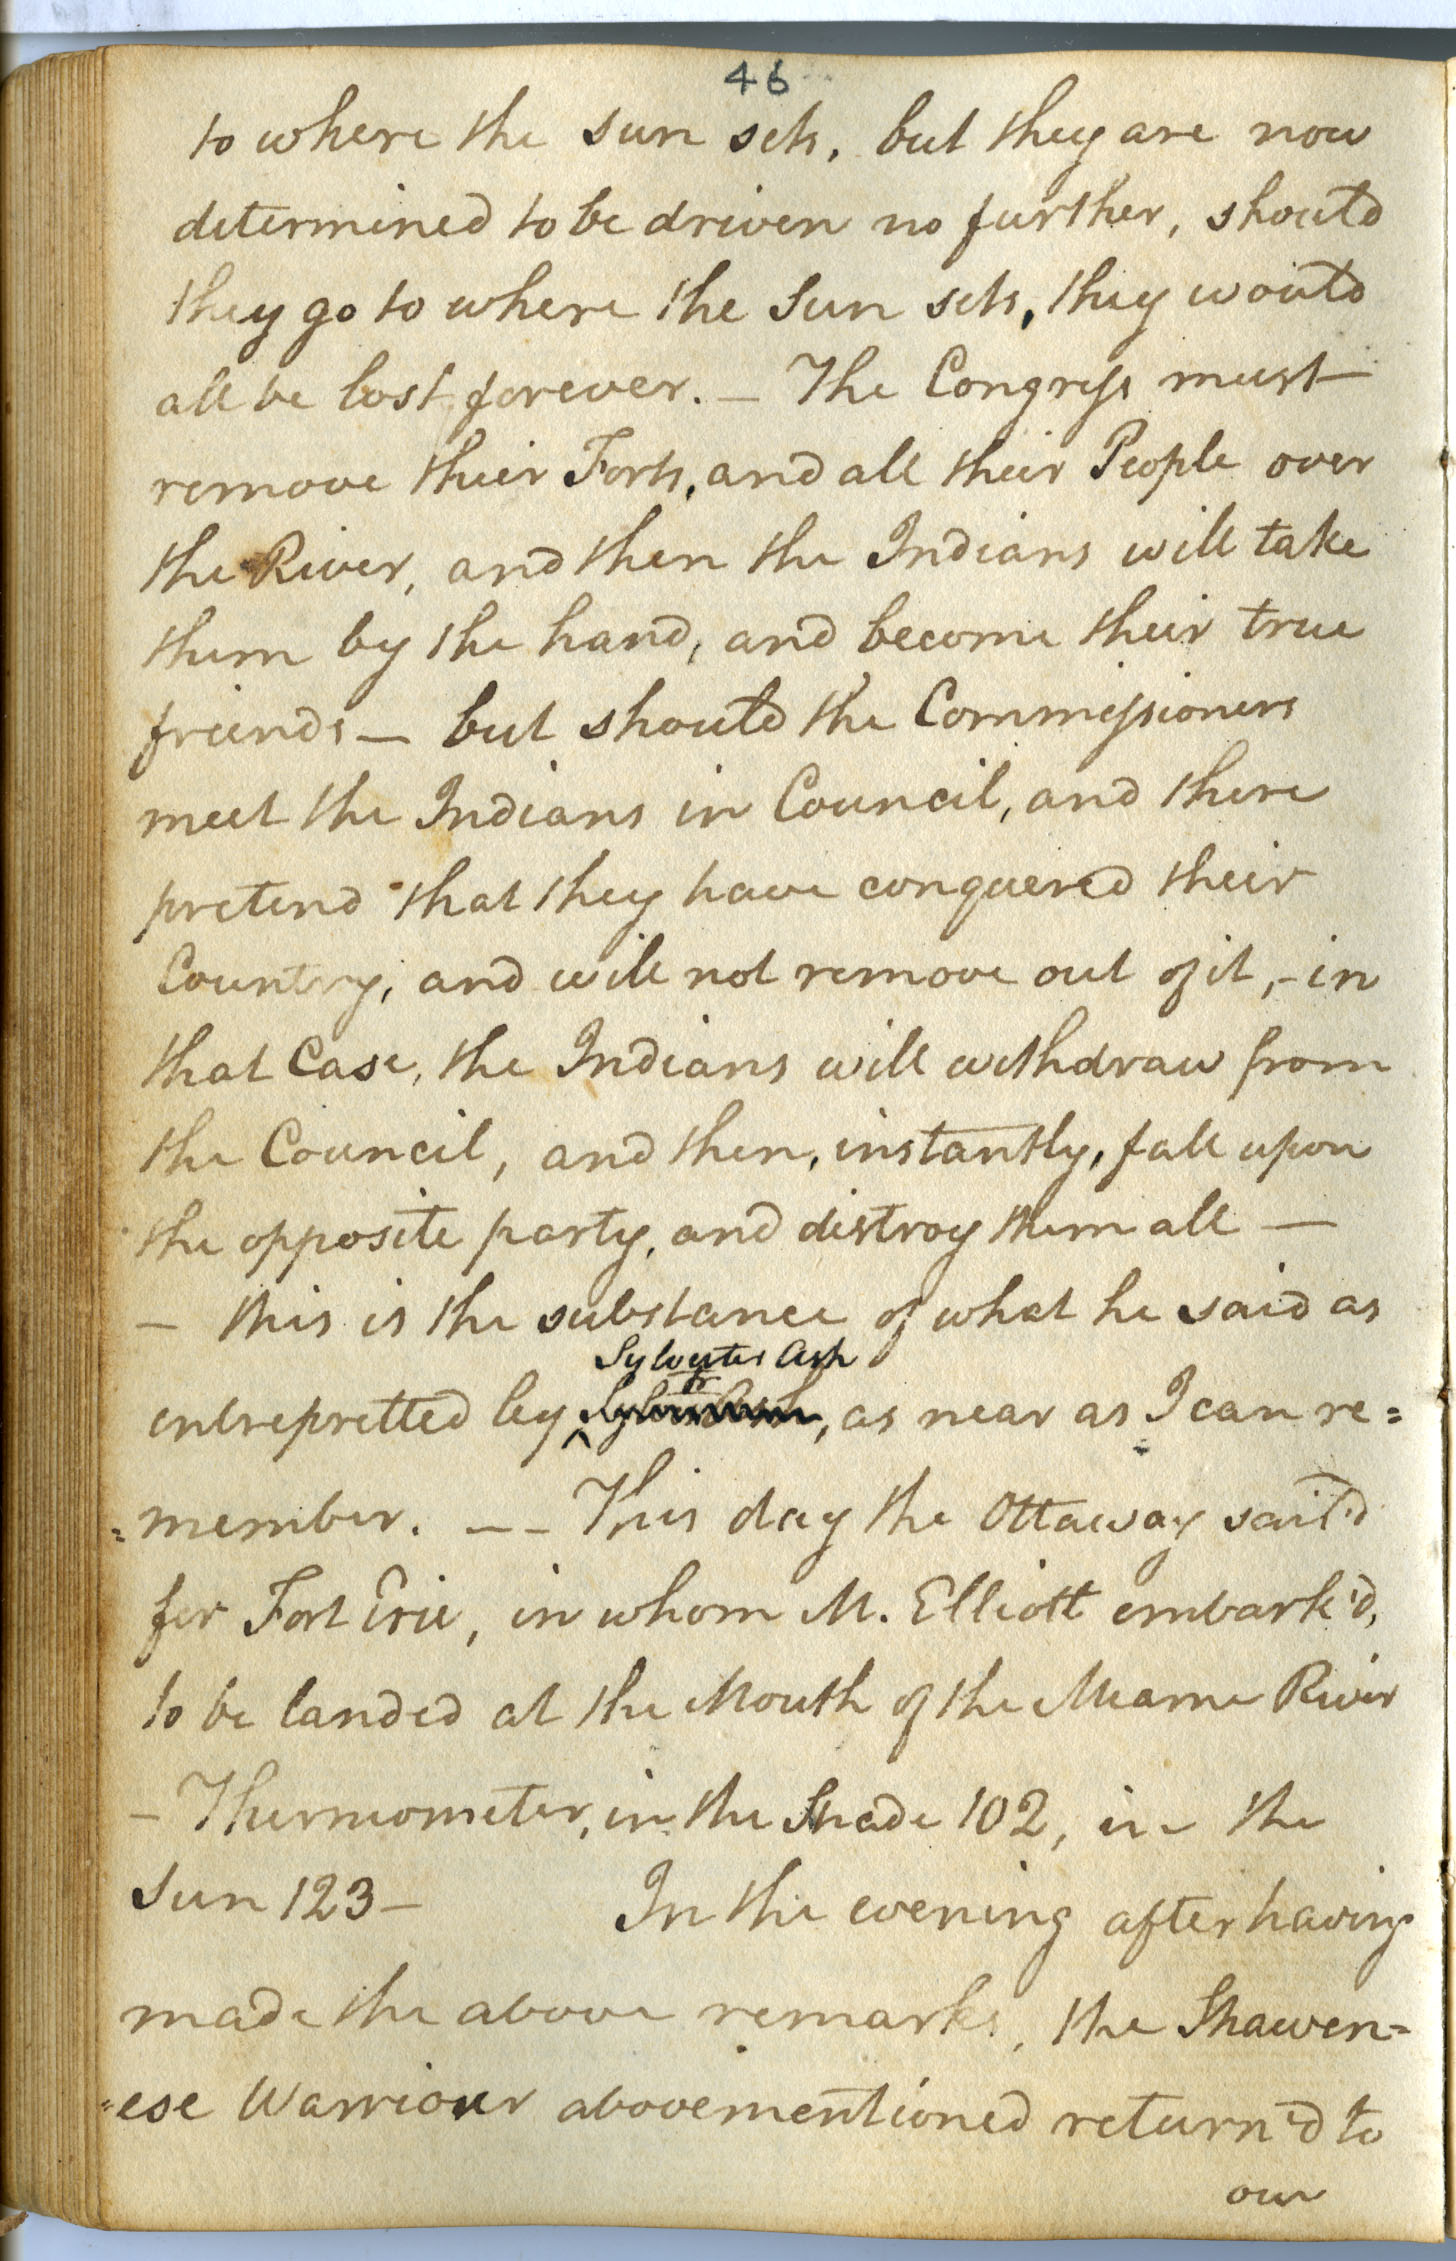 46
to where the sun sets, but they are now
determined to be driven no further, should
they go to where the Sun sets, they would
all be lost forever. — The Congress must
remove their Forts, and all their People over
the River, and then the Indians will take
them by the hand, and become their true
friends — but should the Commissioners
meet the Indians in Council, and there
pretend that they have conquered their
Country, and will not remove out of it, - in
that Case, the Indians will withdraw from
the Council, and then, instantly, fall upon
the opposite party, and distroy them all —
— this is the substance of what he said as
Sylvester Ash
entrepretted by , as near as I can re=
=member. — – This day the Ottaway sail'd
for Fort Erie, in whom M. Elliott embark'd,
to be landed at the Mouth of the Miame River
– Thermometer, in the Shade 102, in the
Sun 123 – In the evening after having
made the above remarks, the Shawen=
=ese Warriour abovementioned return'd to
our